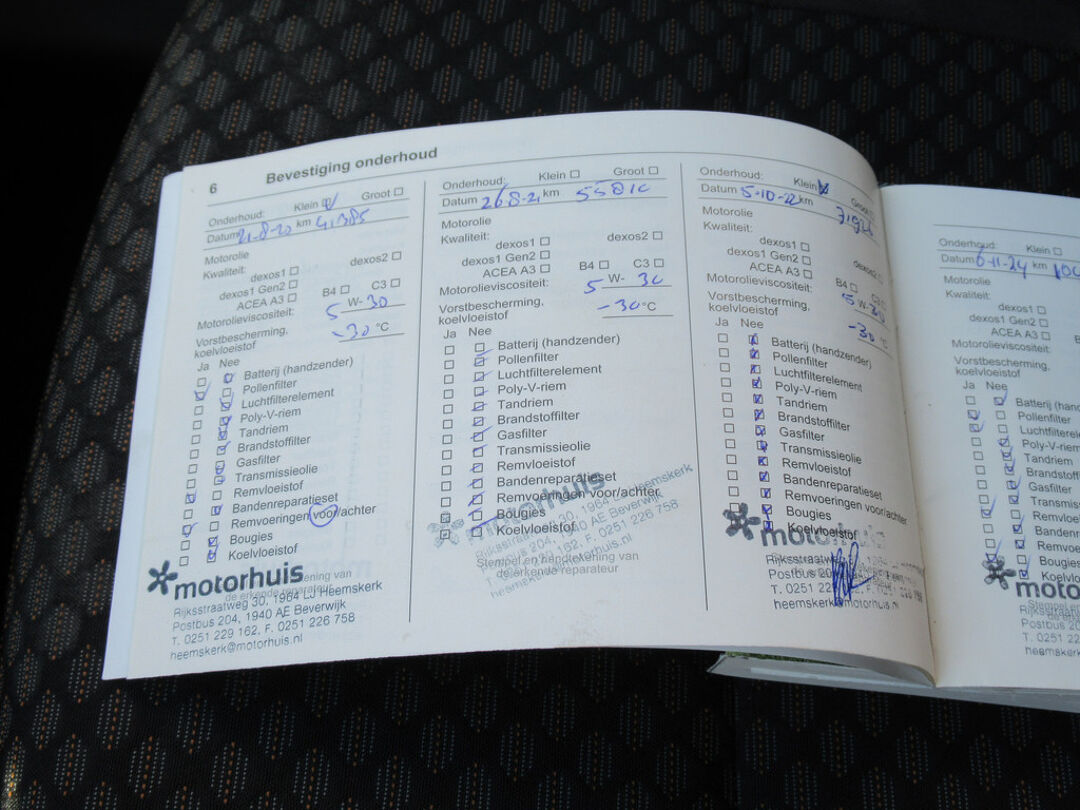 6 Bevestiging onderhoud
Onderhoud: Klein Groot
Datum 21-8-20 km 41385
Motorolie
Kwaliteit:
dexos1 dexos2
dexos1 Gen2
ACEA A3 B4 C3
Motorolieviscositeit: 5 W- 30
Vorstbescherming,
koelvloeistof -30 °C
Ja Nee
Batterij (handzender)
Pollenfilter
Luchtfilterelement
Poly-V-riem
Tandriem
Brandstoffilter
Gasfilter
Transmissieolie
Remvloeistof
Bandenreparatieset
Remvoeringen voor/achter
Bougies
Koelvloeistof
motorhuis
de erkende reparateur
Rijksstraatweg 30, 1964 LJ Heemskerk
Postbus 204, 1940 AE Beverwijk
T. 0251 229 162, F. 0251 226 758
heemskerk@motorhuis.nl
Onderhoud: Klein Groot
Datum 26-8-21 km 55810
Motorolie
Kwaliteit:
dexos1 dexos2
dexos1 Gen2
ACEA A3 B4 C3
Motorolieviscositeit: 5 W- 30
Vorstbescherming,
koelvloeistof -30 °C
Ja Nee
Batterij (handzender)
Pollenfilter
Luchtfilterelement
Poly-V-riem
Tandriem
Brandstoffilter
Gasfilter
Transmissieolie
Remvloeistof
Bandenreparatieset
Remvoeringen voor/achter
Bougies
Koelvloeistof
motorhuis
Rijksstraatweg 30, 1964 LJ Heemskerk
Postbus 204, 1940 AE Beverwijk
Stempel en handtekening van
de erkende reparateur
Onderhoud: Klein Groot
Datum 5-10-22 km
Motorolie
Kwaliteit:
dexos1
dexos1 Gen2 dexos2
ACEA A3 B4 C3
Motorolieviscositeit: 5 W- 30
Vorstbescherming,
koelvloeistof -30 °C
Ja Nee
Batterij (handzender)
Pollenfilter
Luchtfilterelement
Poly-V-riem
Tandriem
Brandstoffilter
Gasfilter
Transmissieolie
Remvloeistof
Bandenreparatieset
Remvoeringen voor/achter
Bougies
Koelvloeistof
motorhuis
Rijksstraatweg
Postbus 204
T. 0251
heemskerk@motorhuis.nl
Onderhoud: Klein
Datum 6-11-24 km
Motorolie
Kwaliteit:
dexos1
dexos1 Gen2
ACEA A3
Motorolieviscositeit:
Vorstbescherming,
koelvloeistof
Ja Nee
Batterij (han
Pollenfilter
Luchtfilterele
Poly-V-ri
Tandriem
Brandstof
Gasfilter
Transmis
Remvloei
Banden
Remvoe
Bougies
Koelvlo
moto
Stempel e
Rijksstraat
Postbus 20
T. 0251 22
heemskerk